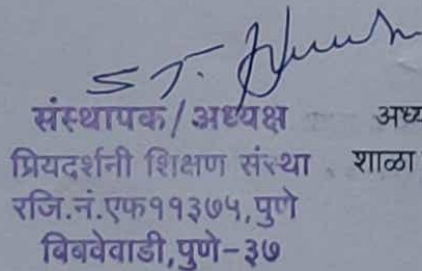 S T.
संस्थापक/अध्यक्ष अध्य
प्रियदर्शनी शिक्षण संस्था शाळा
रजि.नं.एफ११३७५,पुणे
बिबवेवाडी,पुणे-३७